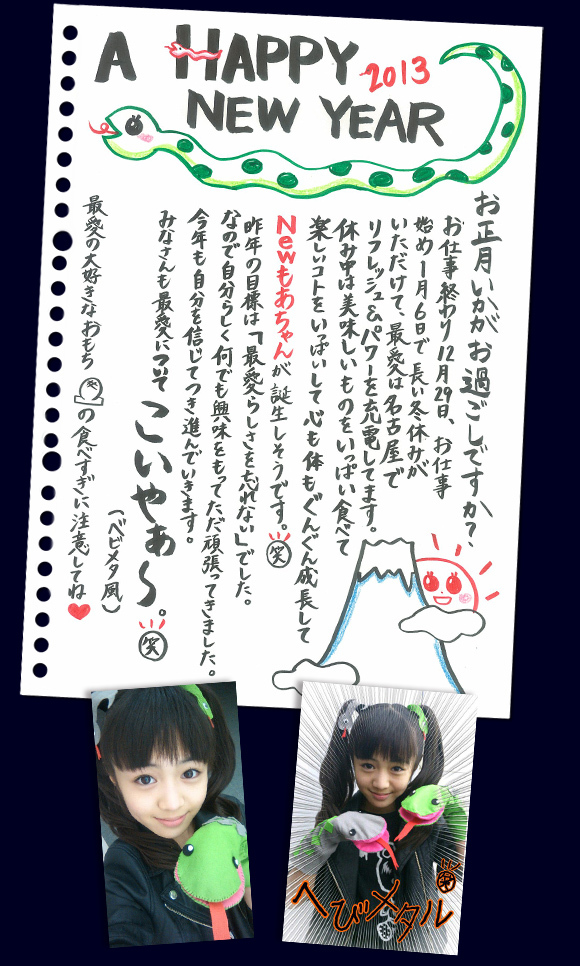 A HAPPY 2013
NEW YEAR
お正月いかがお過ごしですか?、
お仕事終わり12月29日、お仕事
始め1月6日で長い冬休みが
いただけて、最愛は名古屋で
リフレッシュ&パワーを充電してます。
休み中は美味しいものをいっぱい食べて
楽しいコトをいっぱいして心も体もぐんぐん成長して
Newもあちゃんが誕生しそうです。笑
昨年の目標は「最愛らしさを忘れない」でした。
なので自分らしく何でも興味をもってただ頑張ってきました。
今年も自分を信じてつき進んでいきます。
みなさんも最愛についてこいやぁ〜。笑
(ベビメタ風)
最愛の大好きなおもち笑の食べすぎに注意してね
へびメタル笑